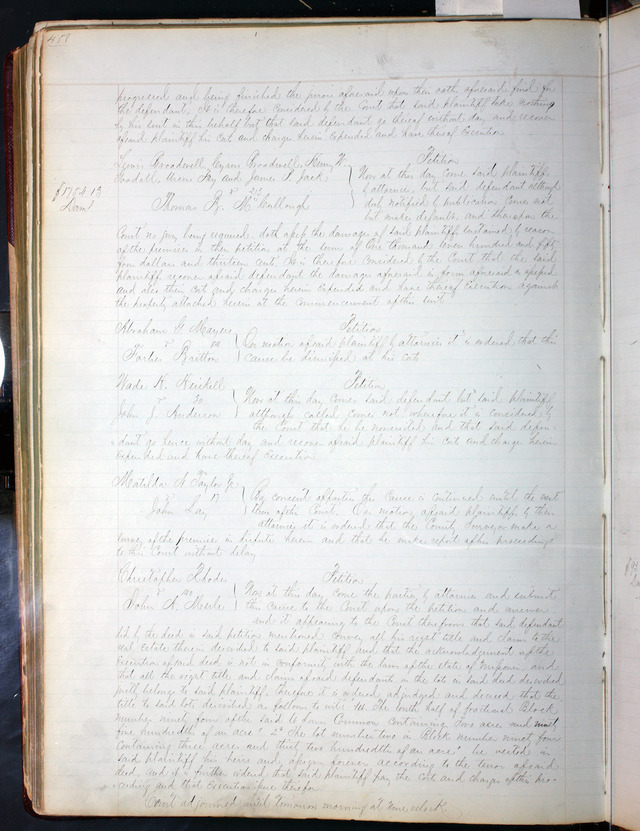 progressed and being finished the jurors aforesaid upon their oath aforesaid find for
the defendant, It is therefore considered by the Court that said plaintiff take nothing
by his suit in this behalf but that said defendant go thereof without day and recover
of said plaintiff his costs and charges herein expended and have thereof Execution
Lewis Broadwell, Cyrus Broadwell, Henry W. Petition
Goodall, and James S. Jack Now at this day come said plaintiffs
$1754.13 by attorney, but said defendant although
Dam! Thomas R. McCullough duly notified by publication comes not
but makes default, and thereupon the
Court no jury being required, doth assess the damages of said plaintiff sustained by reason
of the premises in their petition at the sum of One thousand seven hundred and fifty
four dollars and thirteen cents. It is therefore considered by the Court that the said
plaintiffs recover of said defendant the damages aforesaid in form aforesaid assessed
and also their costs and charges herein expended and have thereof Execution against
the property attached herein at the commencement of this suit
Abraham G. Petition
vs On motion of said plaintiff by attorney it is ordered that this
Britton cause be dismissed at his costs
Wade K. Heiskell Petition
vs 30 Now at this day comes said defendant but said plaintiff
John J. Anderson although called comes not wherefore it is considered by
the Court that he be nonsuited and that said defen-
dant go hence without day and recover of said plaintiff his costs and charges herein
expended and have thereof Execution
Matilda A Taylor
vs 17 By consent of parties this cause is continued until the next
John Lay term of this Court. On motion of said plaintiffs by their
attorney it is ordered that the County Surveyor make a
survey of the premises in dispute herein and that he make report of his proceedings
to this Court without delay
Christopher Rhodes Petition
vs Now at this day come the parties by attornies and submit
John A. this cause to the Court upon the petition and answer
and it appearing to the Court therefrom that said defendant
did by the deed in said petition mentioned convey all his right title and claim to the
real estate therein described to said plaintiff and that the acknowledgement of the
Execution of said deed is not in conformity with the laws of the state of Missouri and
that all the right title and claim of said defendant in the lots in said deed described
belongs to said plaintiff. Therefore it is ordered adjudged and decreed that the
title to said lots described as follows to wit: 1st The South half of fractional Block
number ninety four of the said town Common containing two acres and
five hundredths of an acre. 2d The lot number two in Block number ninety four
containing three acres and thirty two hundredths of an acre, be vested in
said plaintiff his heirs and assigns forever according to the tenor of said
deed, and it is further ordered that said plaintiff pay the costs and charges of this pro-
ceeding and that Execution issue therefor
Court adjourned until tomorrow morning at nine oclock.